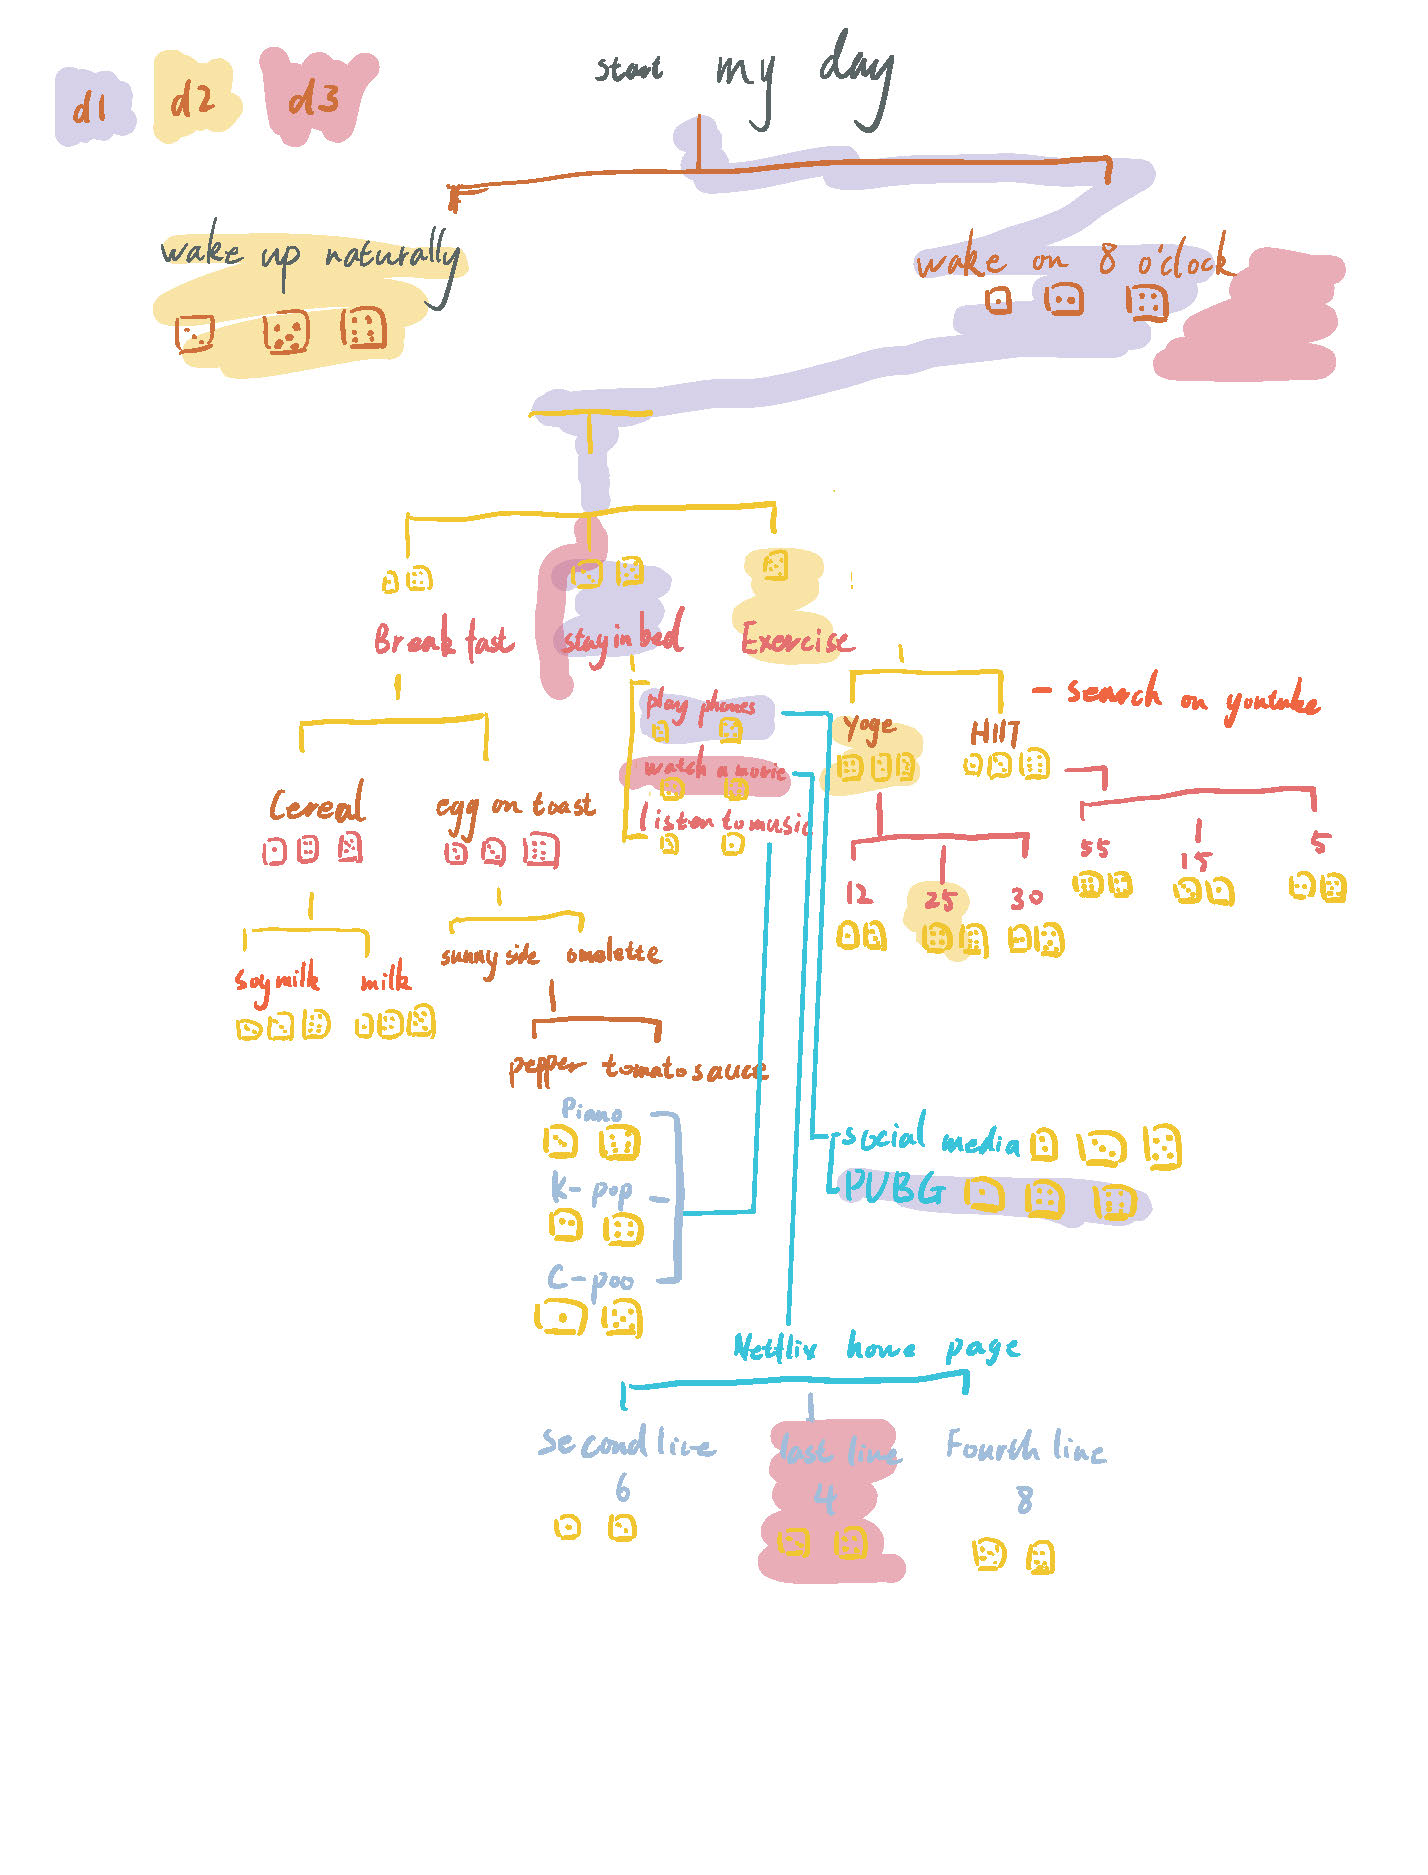 start my day
d1 d2 d3
wake up naturally
wake on 8 o'clock
Breakfast
stay in bed
Exercise
play phones
watch a movie
listen to music
Yoge
HIIT
- search on youtube
Cereal
egg on toast
12
25
30
55
15
5
soymilk
milk
sunny side
omelette
pepper
tomato sauce
Piano
K-pop
C-poo
social media
PUBG
Netflix home page
Second line
last line
Fourth line
6
4
8